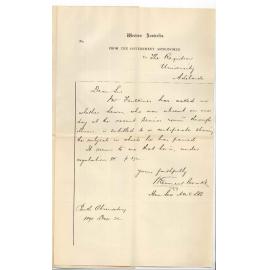 Western Australia
No.
FROM THE GOVERNMENT ASTRONOMER
to The Registrar
University
Adelaide
Dear Sir
Mr Faulkner has asked me
whether Lawn, who was absent on one
day at the recent Senior exam through
illness, is entitled to a certificate showing
the subjects in which he has passed.
It seems to me that he is, under
regulation
yours faithfully
Perth Observatory